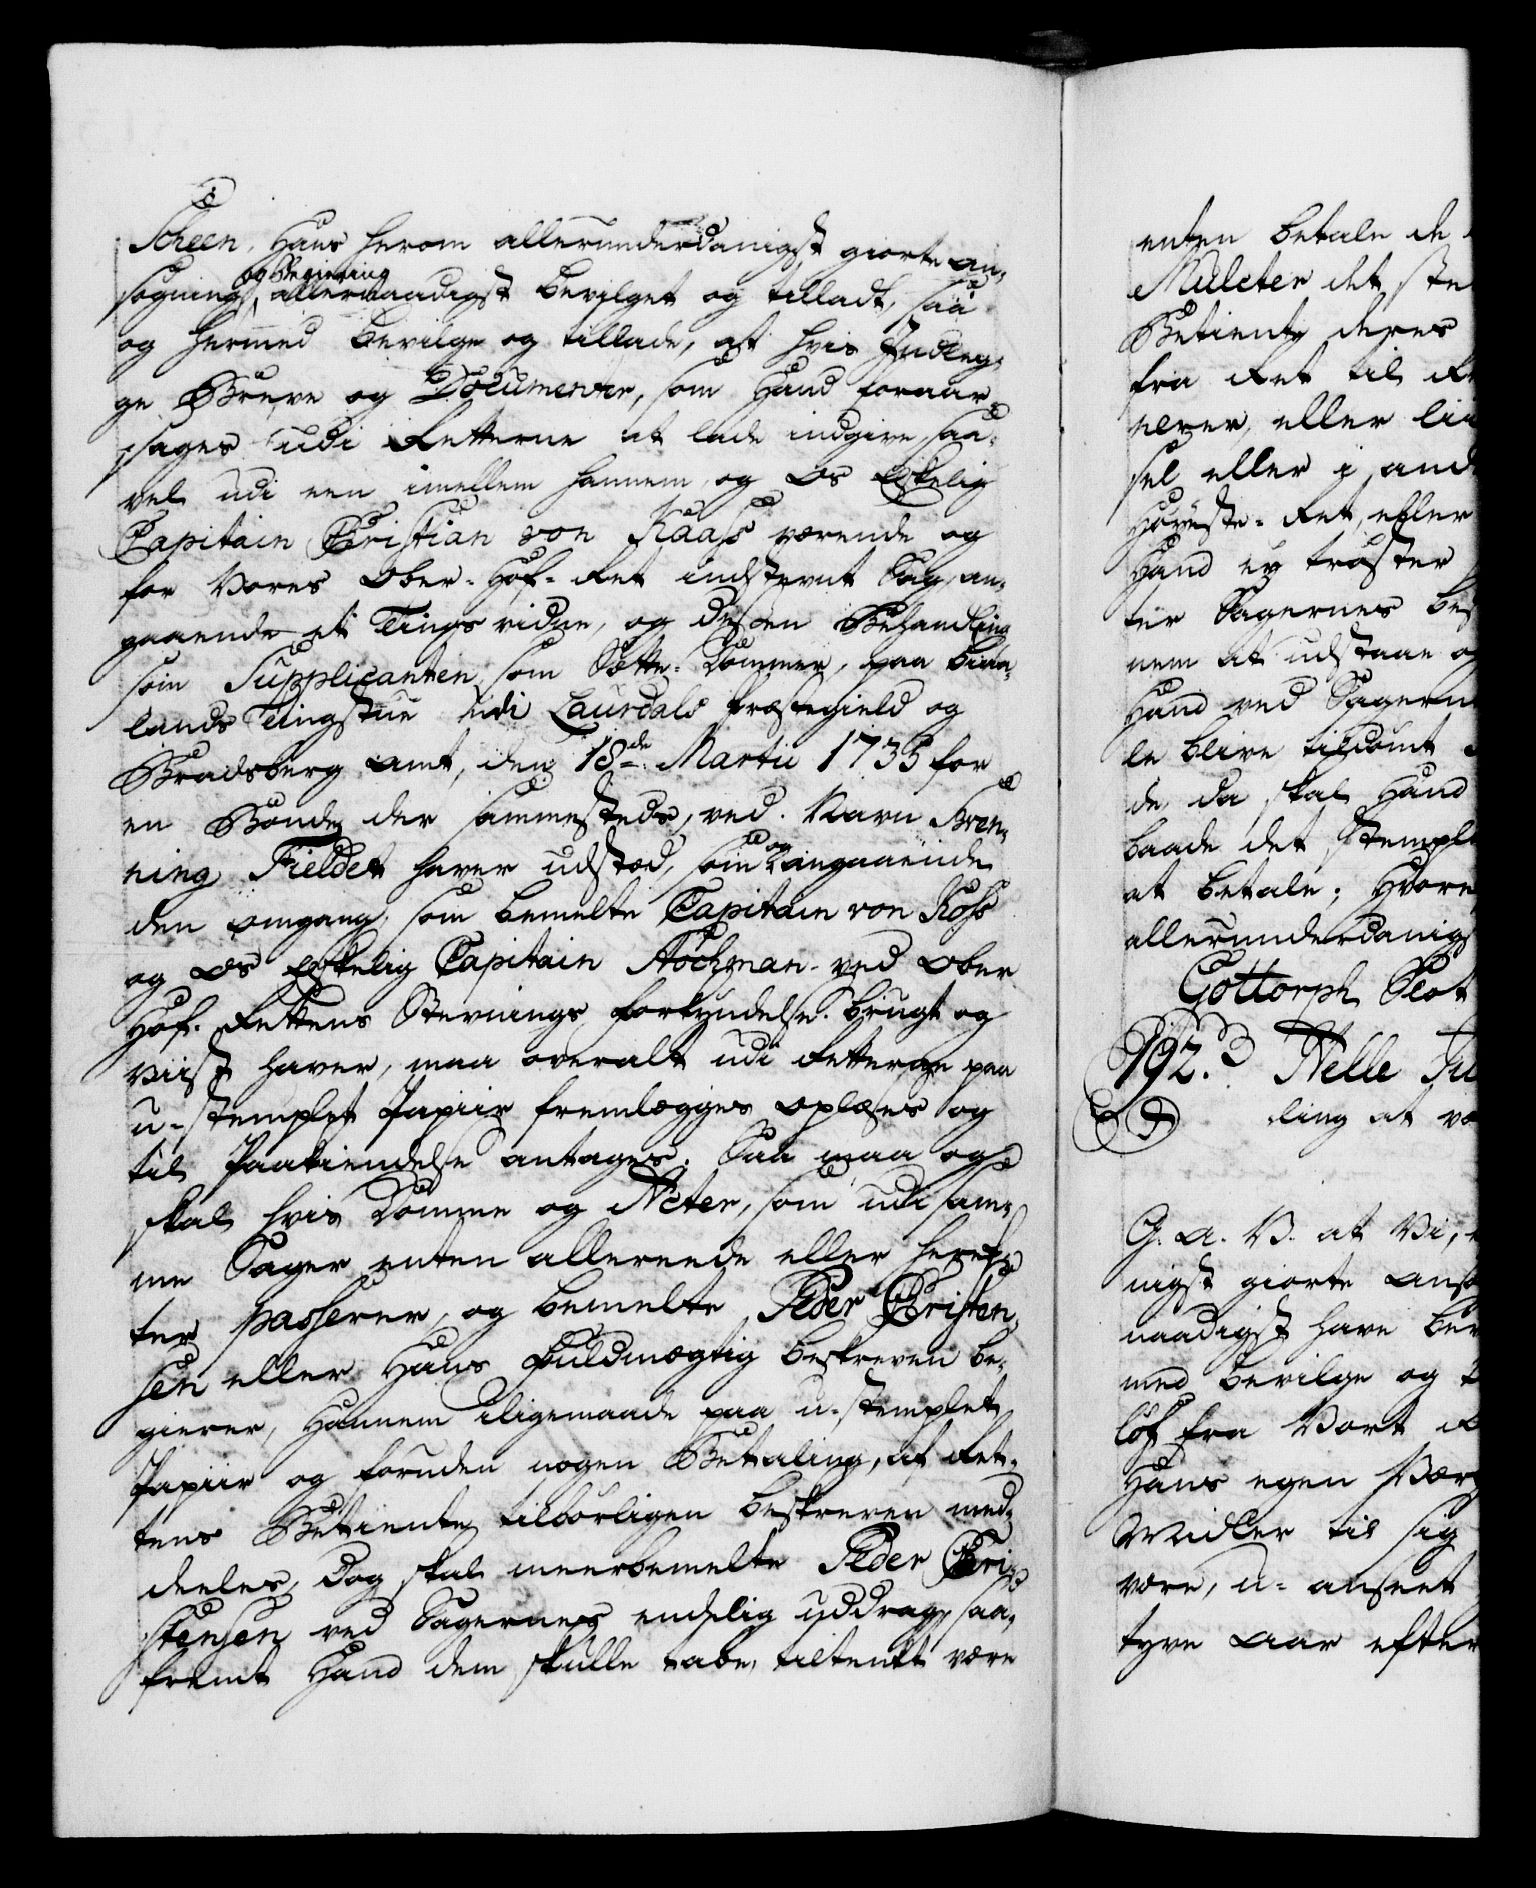 Scheen, Hans herom allerunderdanigst giorte an-
søgning og Begiering, allernaadigst bevilget og tilladt, saa
og hermed bevilge og tillade, at hvis Indleg-
ge Breve og Documenter, som Hand foraar-
sages udi Retterne at lade indgive, saa-
vel udi een imellem hannem, og Os Elskelig
Capitain Christian von Kaass værende og
for Vores Ober-Hof-Ret indstevnt Sag, an-
gaaende et Tings vidne, og dessen Behandling
som Supplicanten, som Sætte-Dommer, paa
lands Tingstue udi Laurdals Præstegield og
Bradsberg amt, den 18de Martii 1735 for
en Bonde der sammesteds, ved Navn Bren-
ning Fieldet haver udstæd, som og angaaende
den omgang, som bemelte Capitain von Koss
og Os Elskelig Capitain Hochman ved Ober
Hof-Rettens Stevnings forkyndelse brugt og
viist haver, maa overalt udi Retterne paa
u-stemplet Papiir fremlegges oplæses og
til Paakiendelse antages. Saa maa og
skal hvis Domme og Acter, som udi sam-
me Sager enten allereede eller heref-
ter passerer, og bemelte Peder Christen-
sen eller Hans Fuldmægtig beskreven be-
gierer, Hannem iligemaade paa u-stemplet
Papiir og foruden nogen Betaling, af Ret-
tens Betiente tilbørligen beskreven med-
deeles, Dog skal meerbemelte Peder Chri-
stensen ved Sagernes endelig uddrag, saa-
fremt Hand dem skulle tabe, tiltenkt være
enten betale de
Mulcter det ste
Betiente deres
fra Ret til Re
never, eller li
sel eller i and
Høyeste-Ret, eller
Hand ey trøster
ter Sagernes bes
nem at udstaae o
Hand ved Sagern
le blive tildømt
de, da skal Hand
baade det stempl
at betale; Hvore
allerunderdanigs
Gottorph Slot
192. Nelle Ju
ling at væ
G. A. V. at Vi,
nigst giorte Ansø
naadigst have bev
med bevilge og t
løs fra Vort R
Hans egen Værg
Midler til sig
være, u-anseet
tyve Aar efter